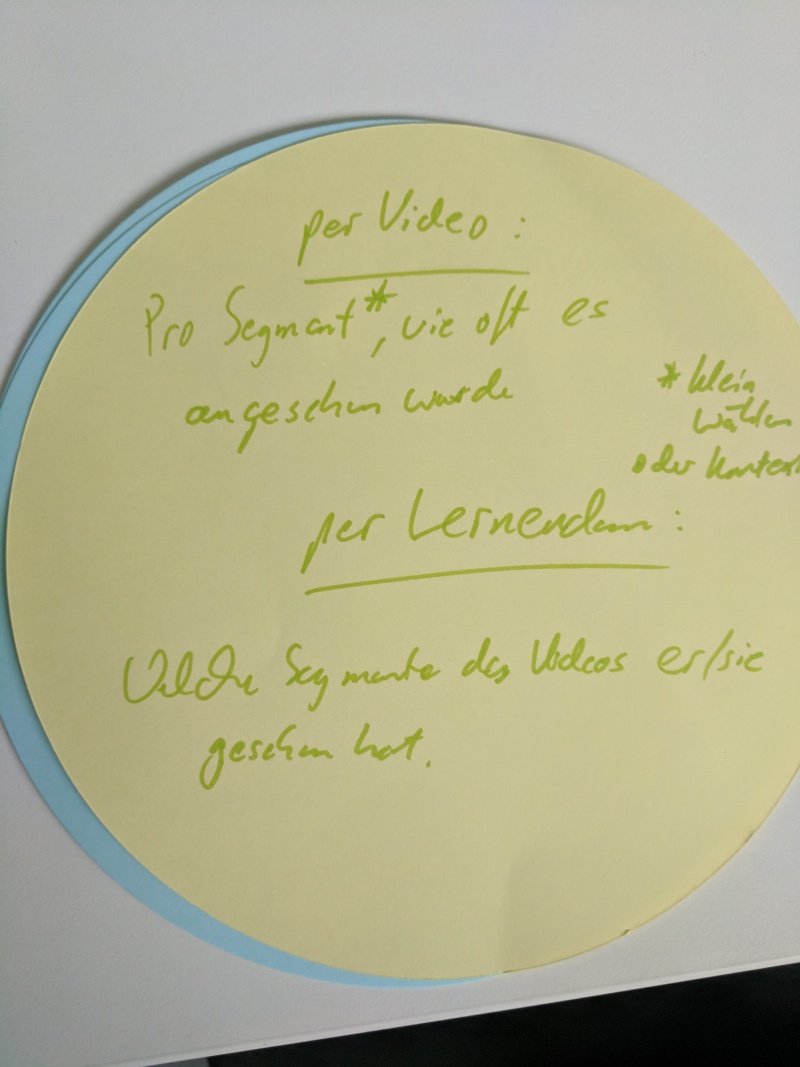 per Video :
Pro Segment*, wie oft es
angesehen wurde
* klein
wählen
oder
per Lernendem :
Welche Segmente des Videos er/sie
gesehen hat.